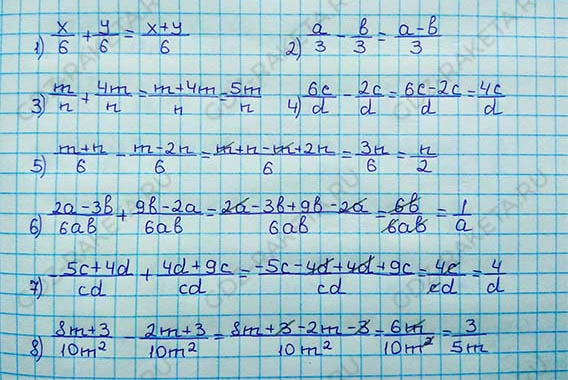 1) x/6 + y/6 = x+y/6 2) a/3 - b/3 = a-b/3
3) m/n + 4m/n = m+4m/n = 5m/n 4) 6c/d - 2c/d = 6c-2c/d = 4c/d
5) m+n/6 - m-2n/6 = m+n-m+2n/6 = 3n/6 = n/2
6) 2a-3b/6ab + 9b-2a/6ab = 2a-3b+9b-2a/6ab = 6b/6ab = 1/a
7) -5c+4d/cd + 4d+9c/cd = -5c-4d+4d+9c/cd = 4c/cd = 4/d
8) 8m+3/10m² - 2m+3/10m² = 8m+3-2m-3/10m² = 6m/10m² = 3/5m
GDZ-RAKETA.RU